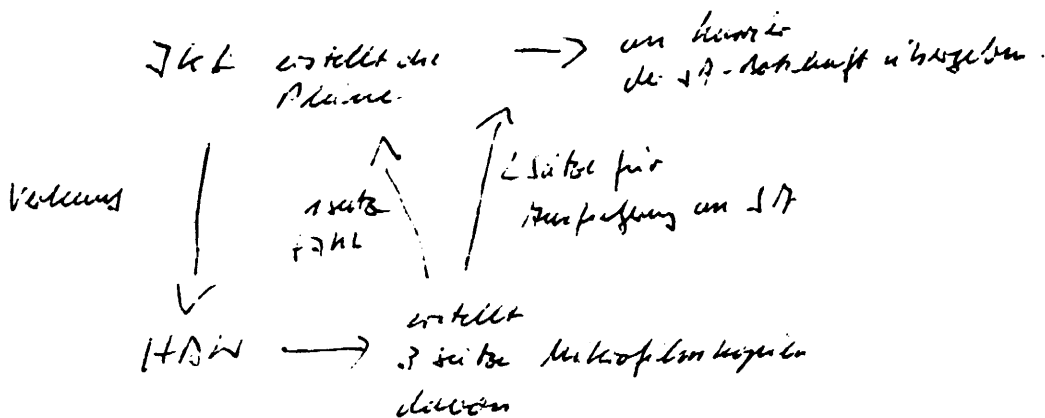 IKL erstellt die
Pläne.
an Kurier
der SA-Botschaft übergeben.
Verkauf
1 Satz
f. IKL
2 Sätze für
Ausfuhr an SA
HDW
erstellt
3 Sätze Mikrofilmkopien
davon